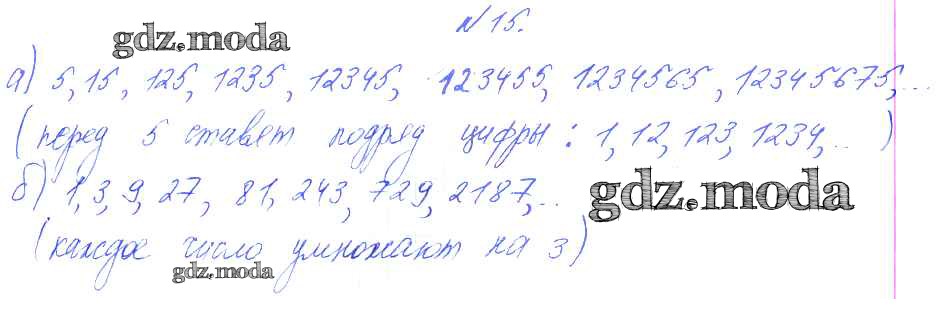 № 15.
gdz.moda
а) 5, 15, 125, 1235, 12345, 123455, 1234565, 12345675, ...
(перед 5 ставят подряд цифры: 1, 12, 123, 1234, ... )
б) 1, 3, 9, 27, 81, 243, 729, 2187, ...
gdz.moda
(каждое число умножают на 3)
gdz.moda